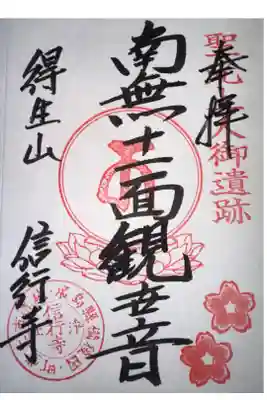 奉拝
御遺跡
南無十一面観世音
得生山
信行寺
信行寺